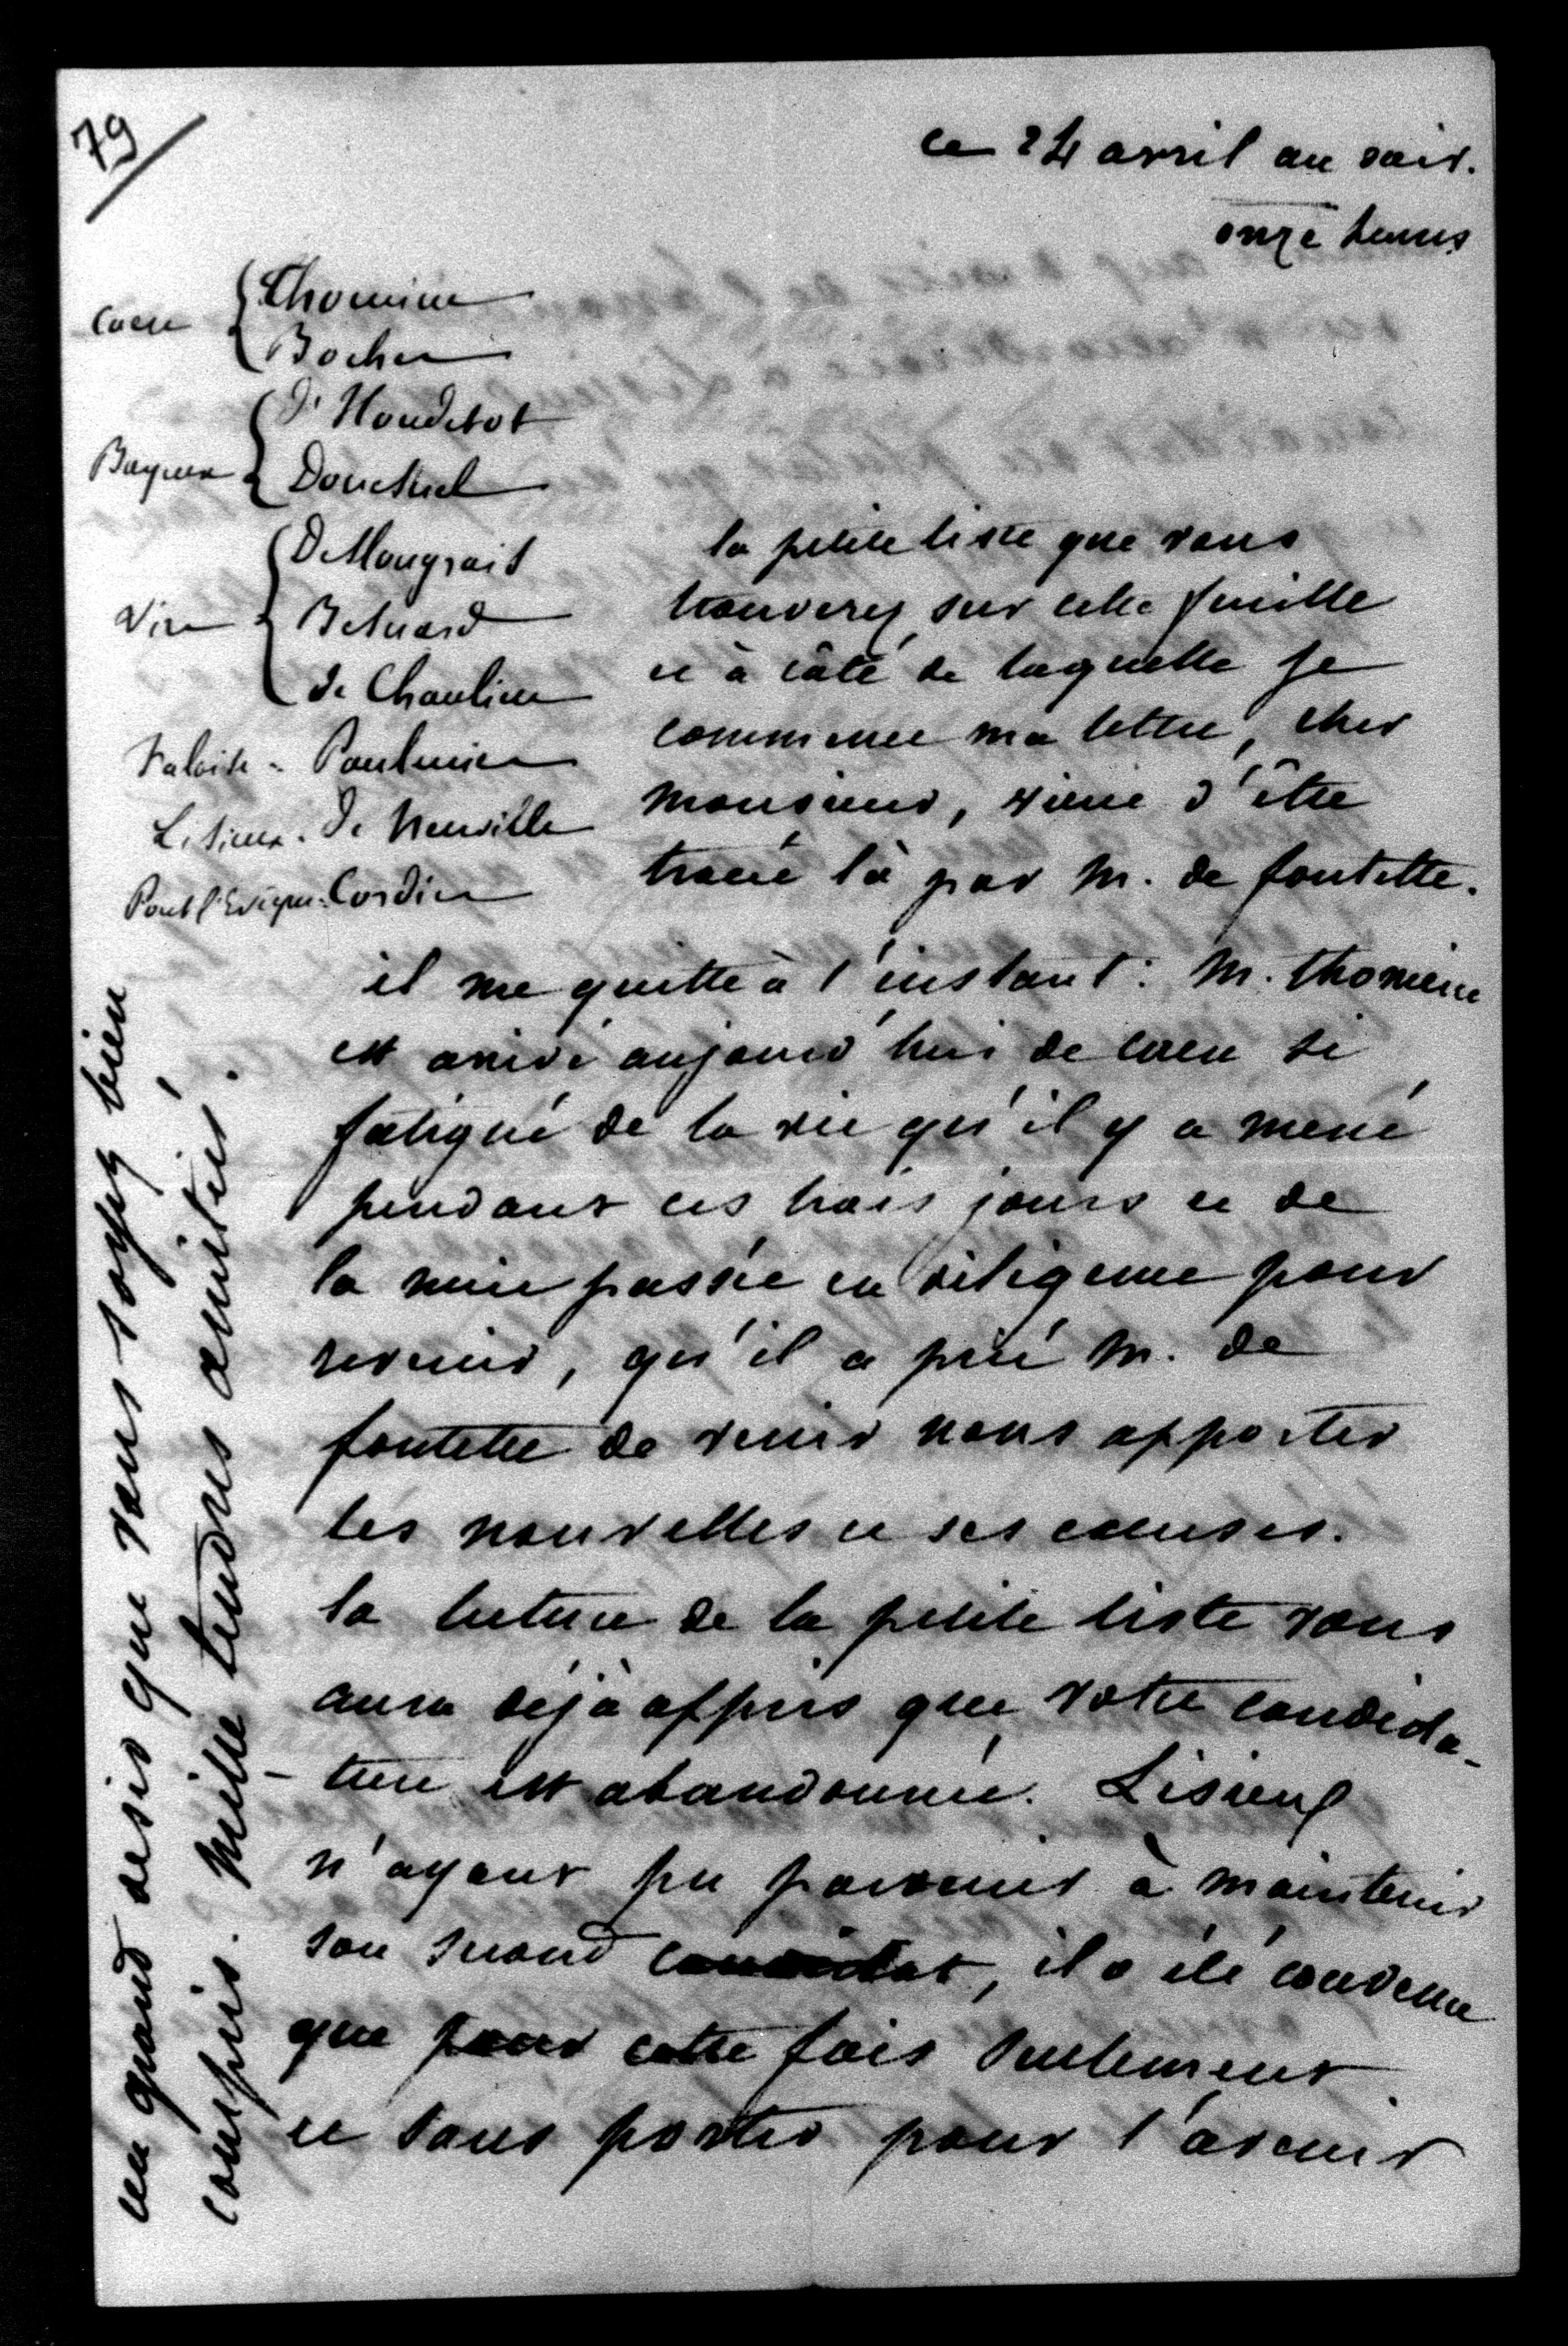 79
ce 24 avril au soir.
onze heures
Caen { Thomine
Bocher
Bayeux { D'Houdetot
Douesnel
Vire { D Mongrait
Besnard
de Chaulieu
Falaise - Paulmier
Lisieux. De Neuville
Pont l'Evêque. Cordier
la petite liste que vous
trouverez sur cette feuille
et à côté de laquelle je
commence ma lettre, cher
monsieur, vient d'être
tracée là par M. de fontette.
il me quitte à l'instant : M. thomine
est arrivé aujourd'hui de caen si
fatigué de la vie qu'il y a mené
pendant ces trois jours et de
la nuit passée en diligence pour
revenir, qu'il a prié M. de
fontette de venir nous apporter
les nouvelles et ses excuses.
la lecture de la petite liste vous
aura déjà appris que votre candida-
-ture est abandonnée. Lisieux
n'ayant pu parvenir à maintenir
son second candidat, il a été convenu
que pour cette fois seulement
et sans porter pour l'avenir
un grand désir que vous soyez bien
compris. Mille tendres amitiés.